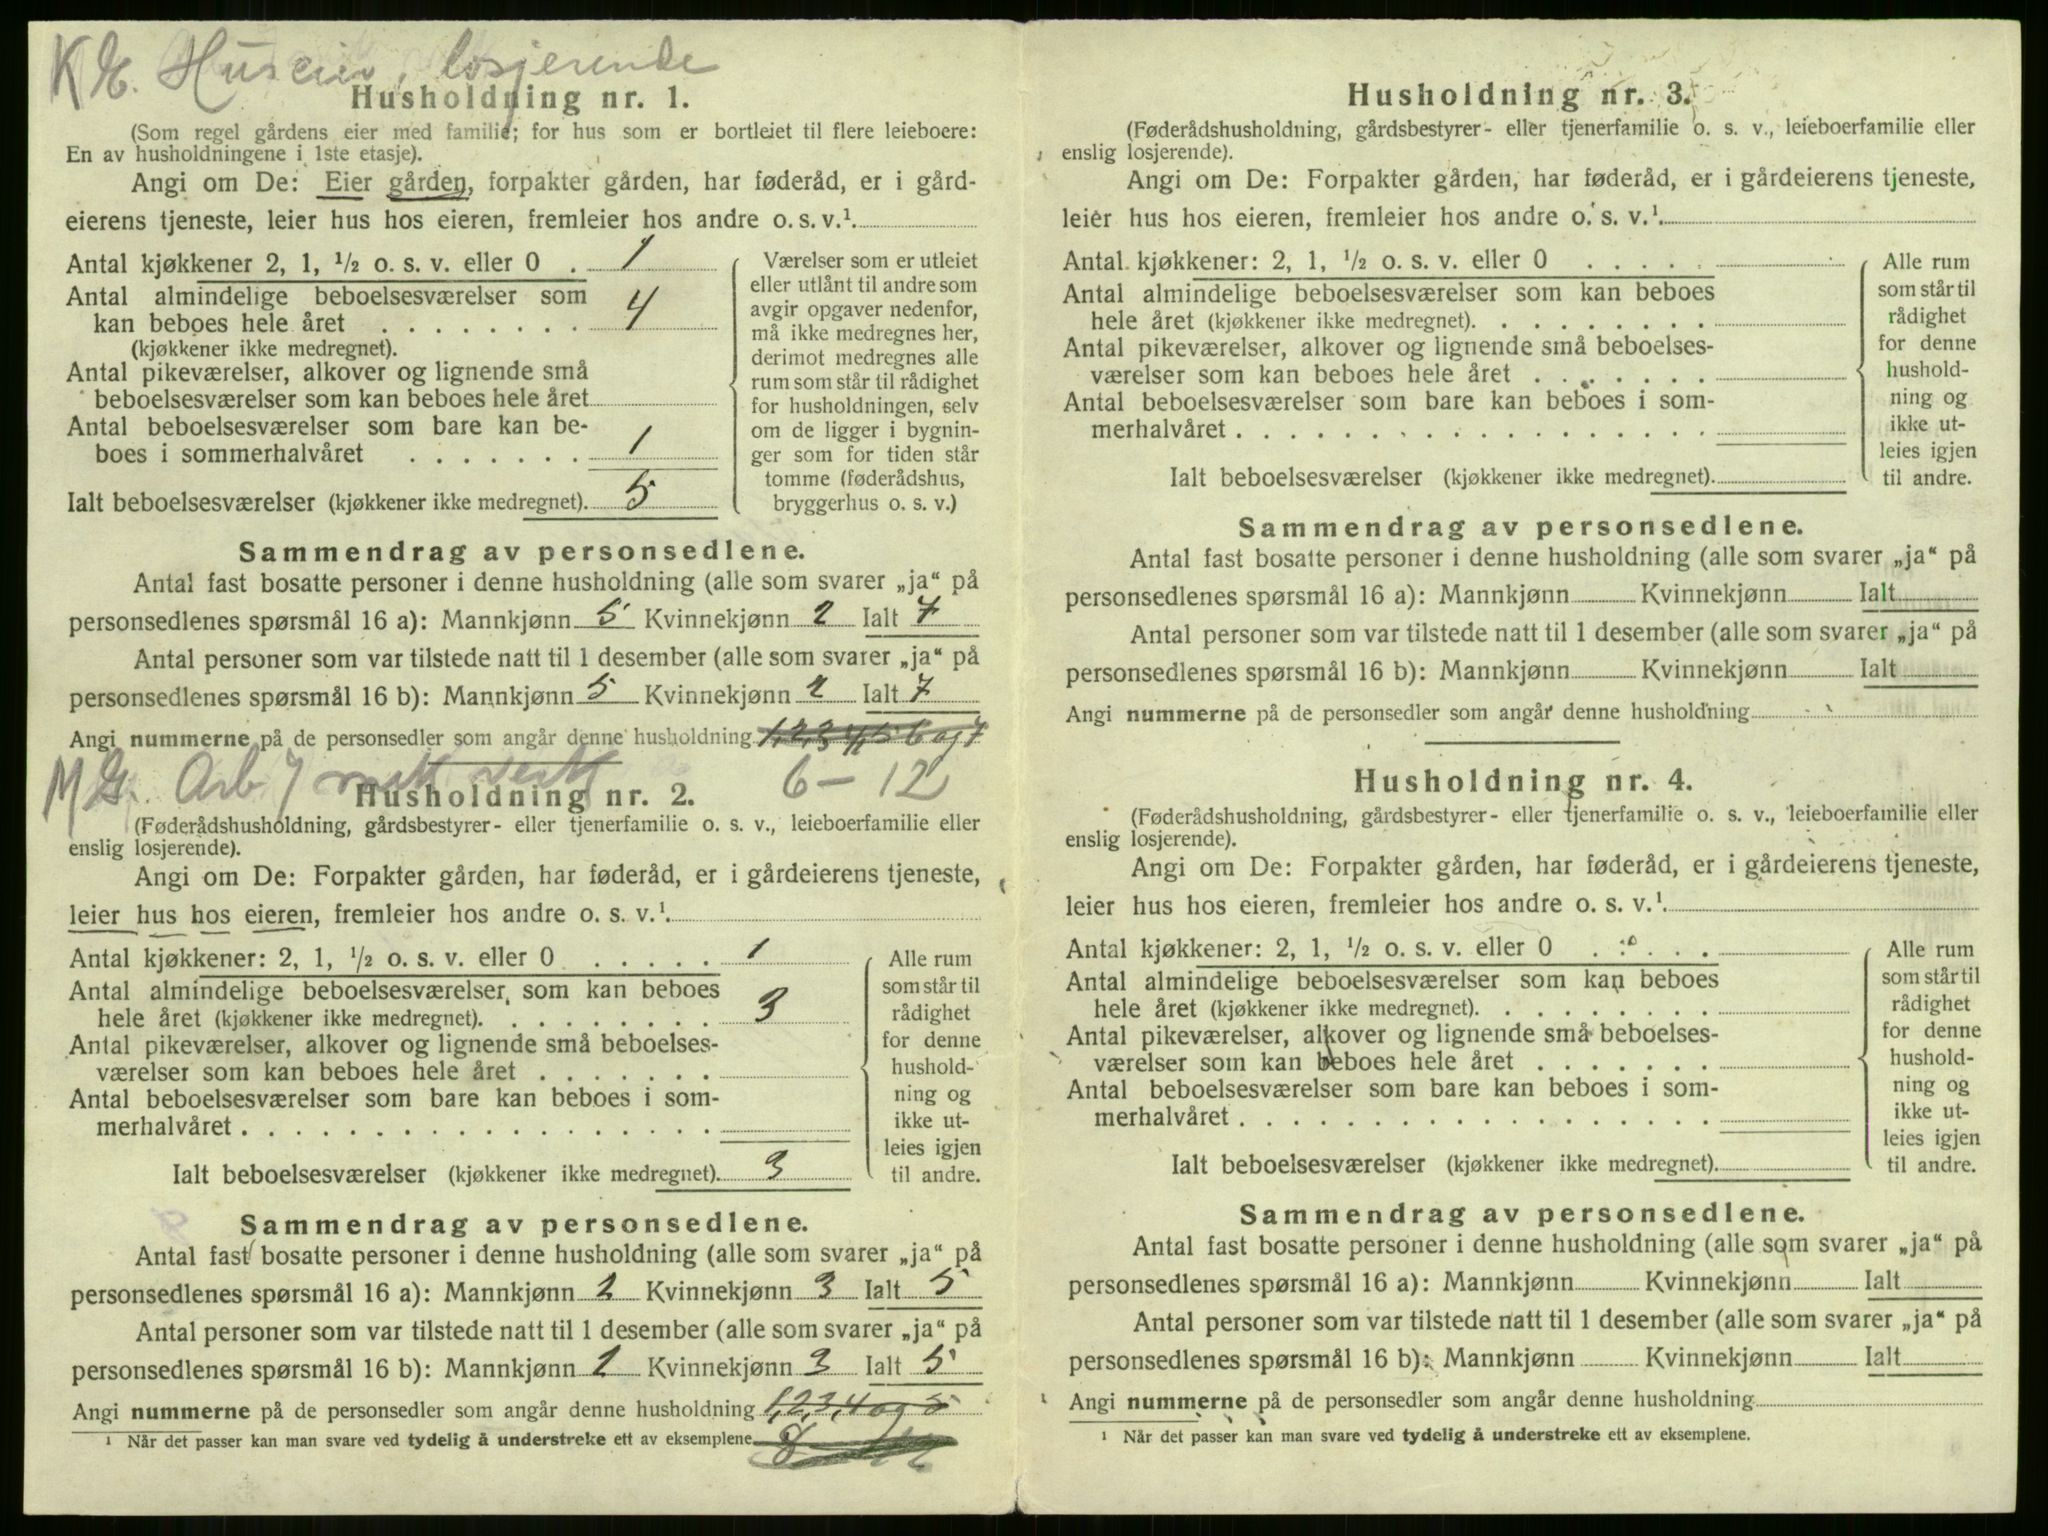 K.G. Huseier, losjerende
Husholdning nr. 1.
(Som regel gårdens eier med familie; for hus som er bortleiet til flere leieboere:
En av husholdningene i 1ste etasje).
Angi om De: Eier gården, forpakter gården, har føderåd, er i gård-
eierens tjeneste, leier hus hos eieren, fremleier hos andre o. s. v.¹
Antal kjøkkener 2, 1, ½ o. s. v. eller 0 . 1
Antal almindelige beboelsesværelser som
kan beboes hele året . . . . . . . . 4
(kjøkkener ikke medregnet).
Antal pikeværelser, alkover og lignende små
beboelsesværelser som kan beboes hele året
Antal beboelsesværelser som bare kan be-
boes i sommerhalvåret . . . . . . . 1
Ialt beboelsesværelser (kjøkkener ikke medregnet). 5
Værelser som er utleiet
eller utlånt til andre som
avgir opgaver nedenfor,
må ikke medregnes her,
derimot medregnes alle
rum som står til rådighet
for husholdningen, selv
om de ligger i bygnin-
ger som for tiden står
tomme (føderådshus,
bryggerhus o. s. v.)
Sammendrag av personsedlene.
Antal fast bosatte personer i denne husholdning (alle som svarer „ja“ på
personsedlenes spørsmål 16 a): Mannkjønn 5 Kvinnekjønn 2 Ialt 7
Antal personer som var tilstede natt til 1 desember (alle som svarer „ja“ på
personsedlenes spørsmål 16 b): Mannkjønn 5 Kvinnekjønn 2 Ialt 7
Angi nummerne på de personsedler som angår denne husholdning 1,2,3,4,5 6 og 7
6 – 12
M.G. Arb
Husholdning nr. 2.
(Føderådshusholdning, gårdsbestyrer- eller tjenerfamilie o. s. v., leieboerfamilie eller
enslig losjerende).
Angi om De: Forpakter gården, har føderåd, er i gårdeierens tjeneste,
leier hus hos eieren, fremleier hos andre o. s. v.¹
Antal kjøkkener: 2, 1, ½ o. s. v. eller 0 . . . . . 1
Antal almindelige beboelsesværelser som kan beboes
hele året (kjøkkener ikke medregnet). . . . . . . . 3
Antal pikeværelser, alkover og lignende små beboelses-
værelser som kan beboes hele året . . . . . . .
Antal beboelsesværelser som bare kan beboes i som-
merhalvåret . . . . . . . . . . . . . . . . . .
Ialt beboelsesværelser (kjøkkener ikke medregnet). 3
Alle rum
som står til
rådighet
for denne
hushold-
ning og
ikke ut-
leies igjen
til andre.
Sammendrag av personsedlene.
Antal fast bosatte personer i denne husholdning (alle som svarer „ja“ på
personsedlenes spørsmål 16 a): Mannkjønn 2 Kvinnekjønn 3 Ialt 5
Antal personer som var tilstede natt til 1 desember (alle som svarer „ja“ på
personsedlenes spørsmål 16 b): Mannkjønn 2 Kvinnekjønn 3 Ialt 5
Angi nummerne på de personsedler som angår denne husholdning 1,2,3,4 og 5
¹ Når det passer kan man svare ved tydelig å understreke ett av eksemplene.
Husholdning nr. 3.
(Føderådshusholdning, gårdsbestyrer- eller tjenerfamilie o. s. v., leieboerfamilie eller
enslig losjerende).
Angi om De: Forpakter gården, har føderåd, er i gårdeierens tjeneste,
leier hus hos eieren, fremleier hos andre o. s. v.¹
Antal kjøkkener: 2, 1, ½ o. s. v. eller 0 . . . . .
Antal almindelige beboelsesværelser som kan beboes
hele året (kjøkkener ikke medregnet). . . . . . . .
Antal pikeværelser, alkover og lignende små beboelses-
værelser som kan beboes hele året . . . . . . .
Antal beboelsesværelser som bare kan beboes i som-
merhalvåret . . . . . . . . . . . . . . . . . .
Ialt beboelsesværelser (kjøkkener ikke medregnet).
Alle rum
som står til
rådighet
for denne
hushold-
ning og
ikke ut-
leies igjen
til andre.
Sammendrag av personsedlene.
Antal fast bosatte personer i denne husholdning (alle som svarer „ja“ på
personsedlenes spørsmål 16 a): Mannkjønn Kvinnekjønn Ialt
Antal personer som var tilstede natt til 1 desember (alle som svarer „ja“ på
personsedlenes spørsmål 16 b): Mannkjønn Kvinnekjønn Ialt
Angi nummerne på de personsedler som angår denne husholdning
Husholdning nr. 4.
(Føderådshusholdning, gårdsbestyrer- eller tjenerfamilie o. s. v., leieboerfamilie eller
enslig losjerende).
Angi om De: Forpakter gården, har føderåd, er i gårdeierens tjeneste,
leier hus hos eieren, fremleier hos andre o. s. v.¹
Antal kjøkkener: 2, 1, ½ o. s. v. eller 0 . . . .
Antal almindelige beboelsesværelser som kan beboes
hele året (kjøkkener ikke medregnet). . . . . . . .
Antal pikeværelser, alkover og lignende små beboelses-
værelser som kan beboes hele året . . . . . . .
Antal beboelsesværelser som bare kan beboes i som-
merhalvåret . . . . . . . . . . . . . . . . . .
Ialt beboelsesværelser (kjøkkener ikke medregnet).
Alle rum
som står til
rådighet
for denne
hushold-
ning og
ikke ut-
leies igjen
til andre.
Sammendrag av personsedlene.
Antal fast bosatte personer i denne husholdning (alle som svarer „ja“ på
personsedlenes spørsmål 16 a): Mannkjønn Kvinnekjønn Ialt
Antal personer som var tilstede natt til 1 desember (alle som svarer „ja“ på
personsedlenes spørsmål 16 b): Mannkjønn Kvinnekjønn Ialt
Angi nummerne på de personsedler som angår denne husholdning
¹ Når det passer kan man svare ved tydelig å understreke ett av eksemplene.